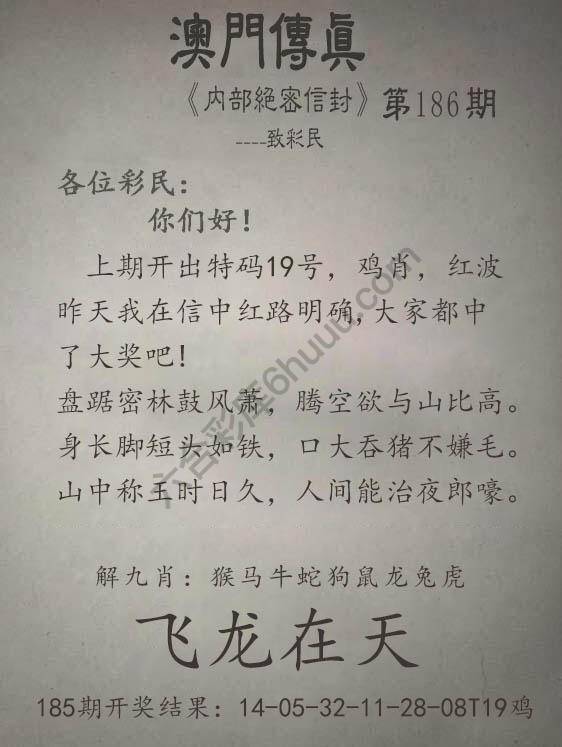 澳門傳真
《内部絕密信封》第186期
----致彩民
各位彩民：
你们好！
上期开出特码19号，鸡肖，红波
昨天我在信中红路明确,大家都中
了大奖吧！
盘踞密林鼓风萧，腾空欲与山比高。
身长脚短头如铁，口大吞猪不嫌毛。
山中称王时日久，人间能治夜郎嚎。
解九肖：猴马牛蛇狗鼠龙兔虎
飞龙在天
185期开奖结果：14-05-32-11-28-08T19鸡
六合彩库6huuu.com